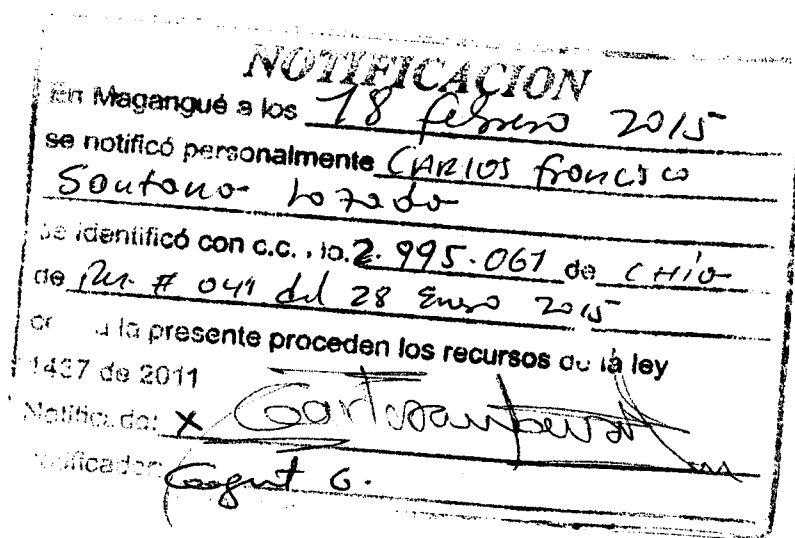 NOTIFICACION
En Magangué a los 18 febrero 2015
se notificó personalmente CARLOS francisco
Santana Lozado
se identificó con c.c. No. 2.995.061 de CHía
de # 041 del 28 Enero 2015
la presente proceden los recursos de la ley
1437 de 2011
Notificado: X
Notificador: G.